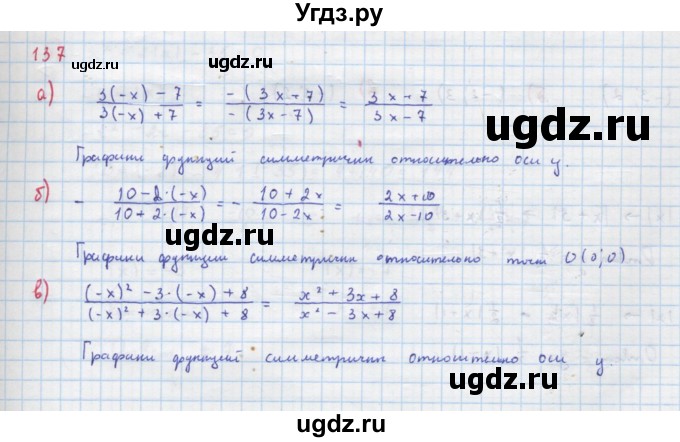 Угдз.ру
137
ugdz.ru ugdz.ru
а) (3(-x) - 7)/(3(-x) + 7) = (-(3x+7))/(-(3x-7)) = (3x+7)/(3x-7)
ugdz.ru
Графики функций симметричн относительно оси y.
ugdz.ru
б) - (10-2·(-x))/(10+2·(-x)) = - (10+2x)/(10-2x) = (2x+10)/(2x-10)
ugdz.ru ugdz.ru
Графики функции симметричн относительно точи O(0;0)
ugdz.ru
в) ((-x)² - 3·(-x) + 8)/((-x)² + 3·(-x) + 8) = (x² + 3x + 8)/(x² - 3x + 8)
ugdz.ru
Графики функций симметричн относительно оси y.
ugdz.ru
ugdz.ru
ugdz.ru